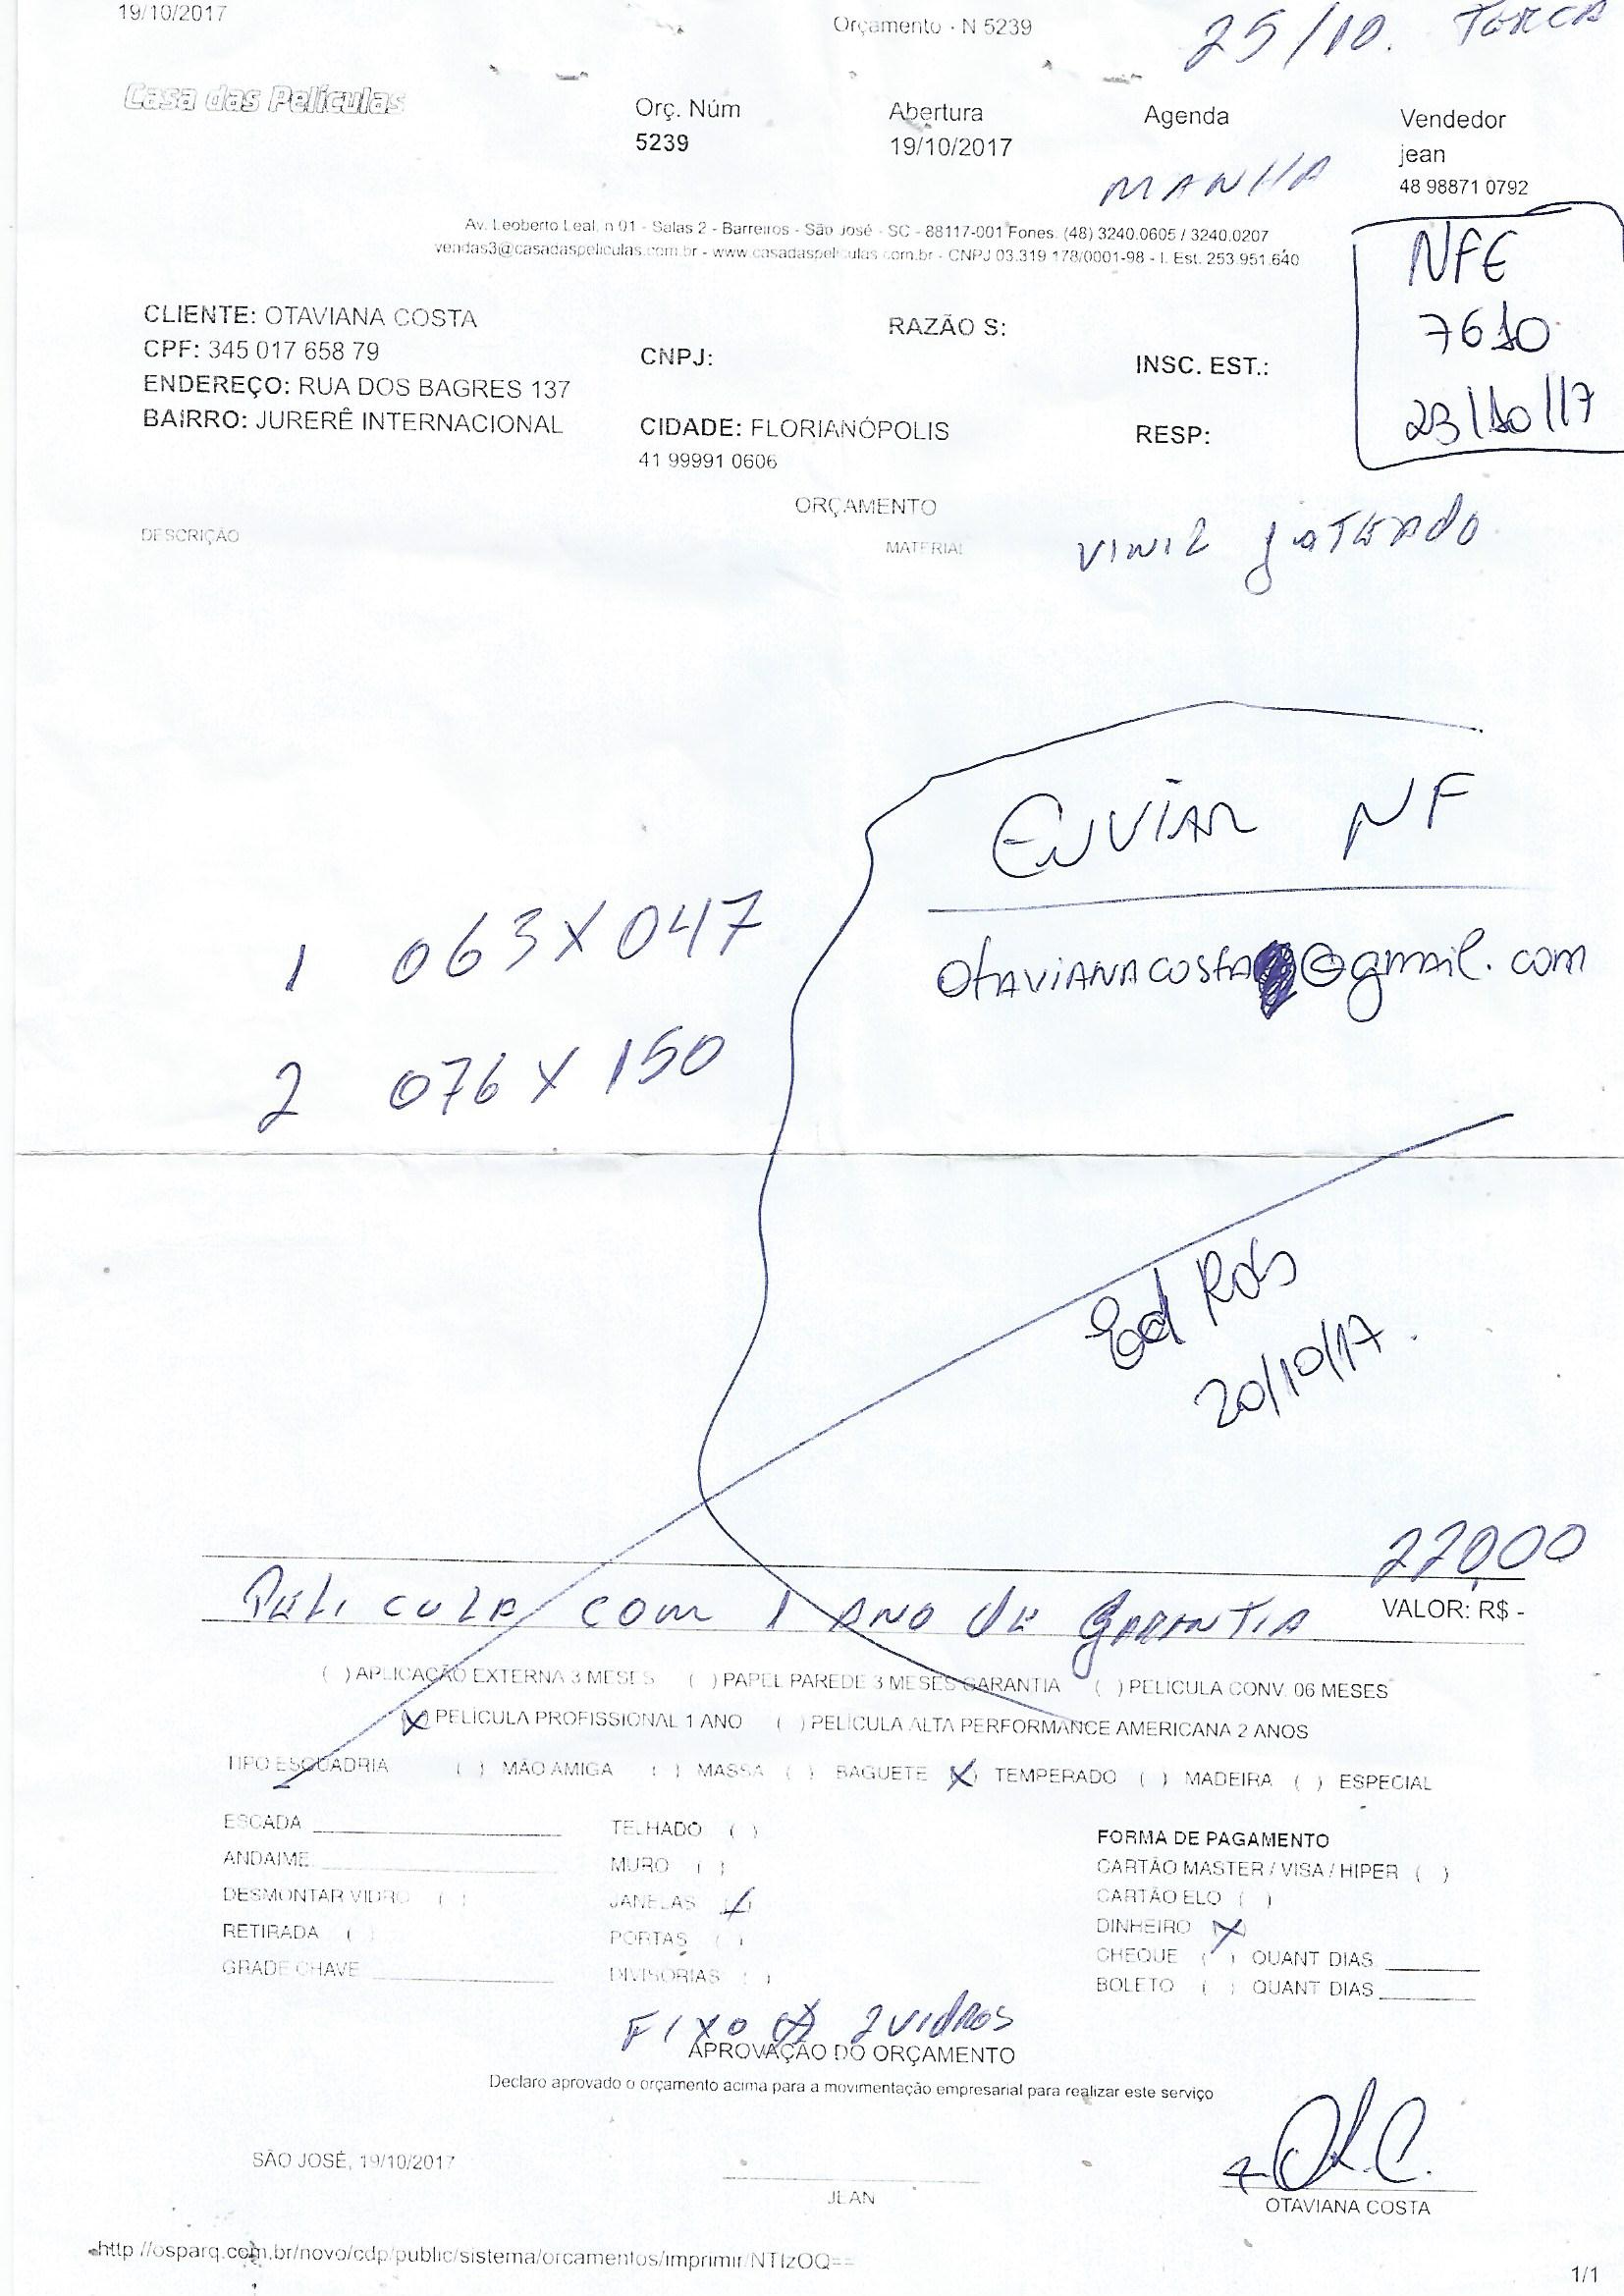 19/10/2017
Orçamento - N 5239
25/10. TERCA
Casa das Películas
Orç. Núm
5239
Abertura
19/10/2017
Agenda
MANHA
Vendedor
jean
48 98871 0792
Av. Leoberto Leal, n 01 - Salas 2 - Barreiros - São José - SC - 88117-001 Fones: (48) 3240.0605 / 3240.0207
vendas3@casadaspeliculas.com.br - www.casadaspeliculas.com.br - CNPJ 03.319 178/0001-98 - I. Est. 253.951.640
NFE
7610
23/10/17
CLIENTE: OTAVIANA COSTA
CPF: 345 017 658 79
ENDEREÇO: RUA DOS BAGRES 137
BAIRRO: JURERÊ INTERNACIONAL
CNPJ:
CIDADE: FLORIANÓPOLIS
41 99991 0606
RAZÃO S:
INSC. EST.:
RESP:
ORÇAMENTO
DESCRIÇÃO
MATERIAL
VINIL JATEADO
ENVIAR NF
otavianacosta@gmail.com
1 063 X 047
2 076 X 150
20/10/17.
220,00
PELICULA COM 1 ANO DE GARANTIA
VALOR: R$ -
( ) APLICAÇÃO EXTERNA 3 MESES ( ) PAPEL PAREDE 3 MESES GARANTIA ( ) PELÍCULA CONV. 06 MESES
(X) PELÍCULA PROFISSIONAL 1 ANO ( ) PELÍCULA ALTA PERFORMANCE AMERICANA 2 ANOS
TIPO ESQUADRIA ( ) MÃO AMIGA ( ) MASSA ( ) BAGUETE (X) TEMPERADO ( ) MADEIRA ( ) ESPECIAL
ESCADA
ANDAIME
DESMONTAR VIDRO ( )
RETIRADA ( )
GRADE CHAVE
TELHADO ( )
MURO ( )
JANELAS (X)
PORTAS ( )
DIVISÓRIAS ( )
FORMA DE PAGAMENTO
CARTÃO MASTER / VISA / HIPER ( )
CARTÃO ELO ( )
DINHEIRO (X)
CHEQUE ( ) QUANT DIAS
BOLETO ( ) QUANT DIAS
FIXO (X) 2 VIDROS
APROVAÇÃO DO ORÇAMENTO
Declaro aprovado o orçamento acima para a movimentação empresarial para realizar este serviço
SÃO JOSÉ, 19/10/2017
JEAN
OTAVIANA COSTA
http://osparq.com.br/novo/cdp/public/sistema/orcamentos/imprimir/NTIzOQ==
1/1